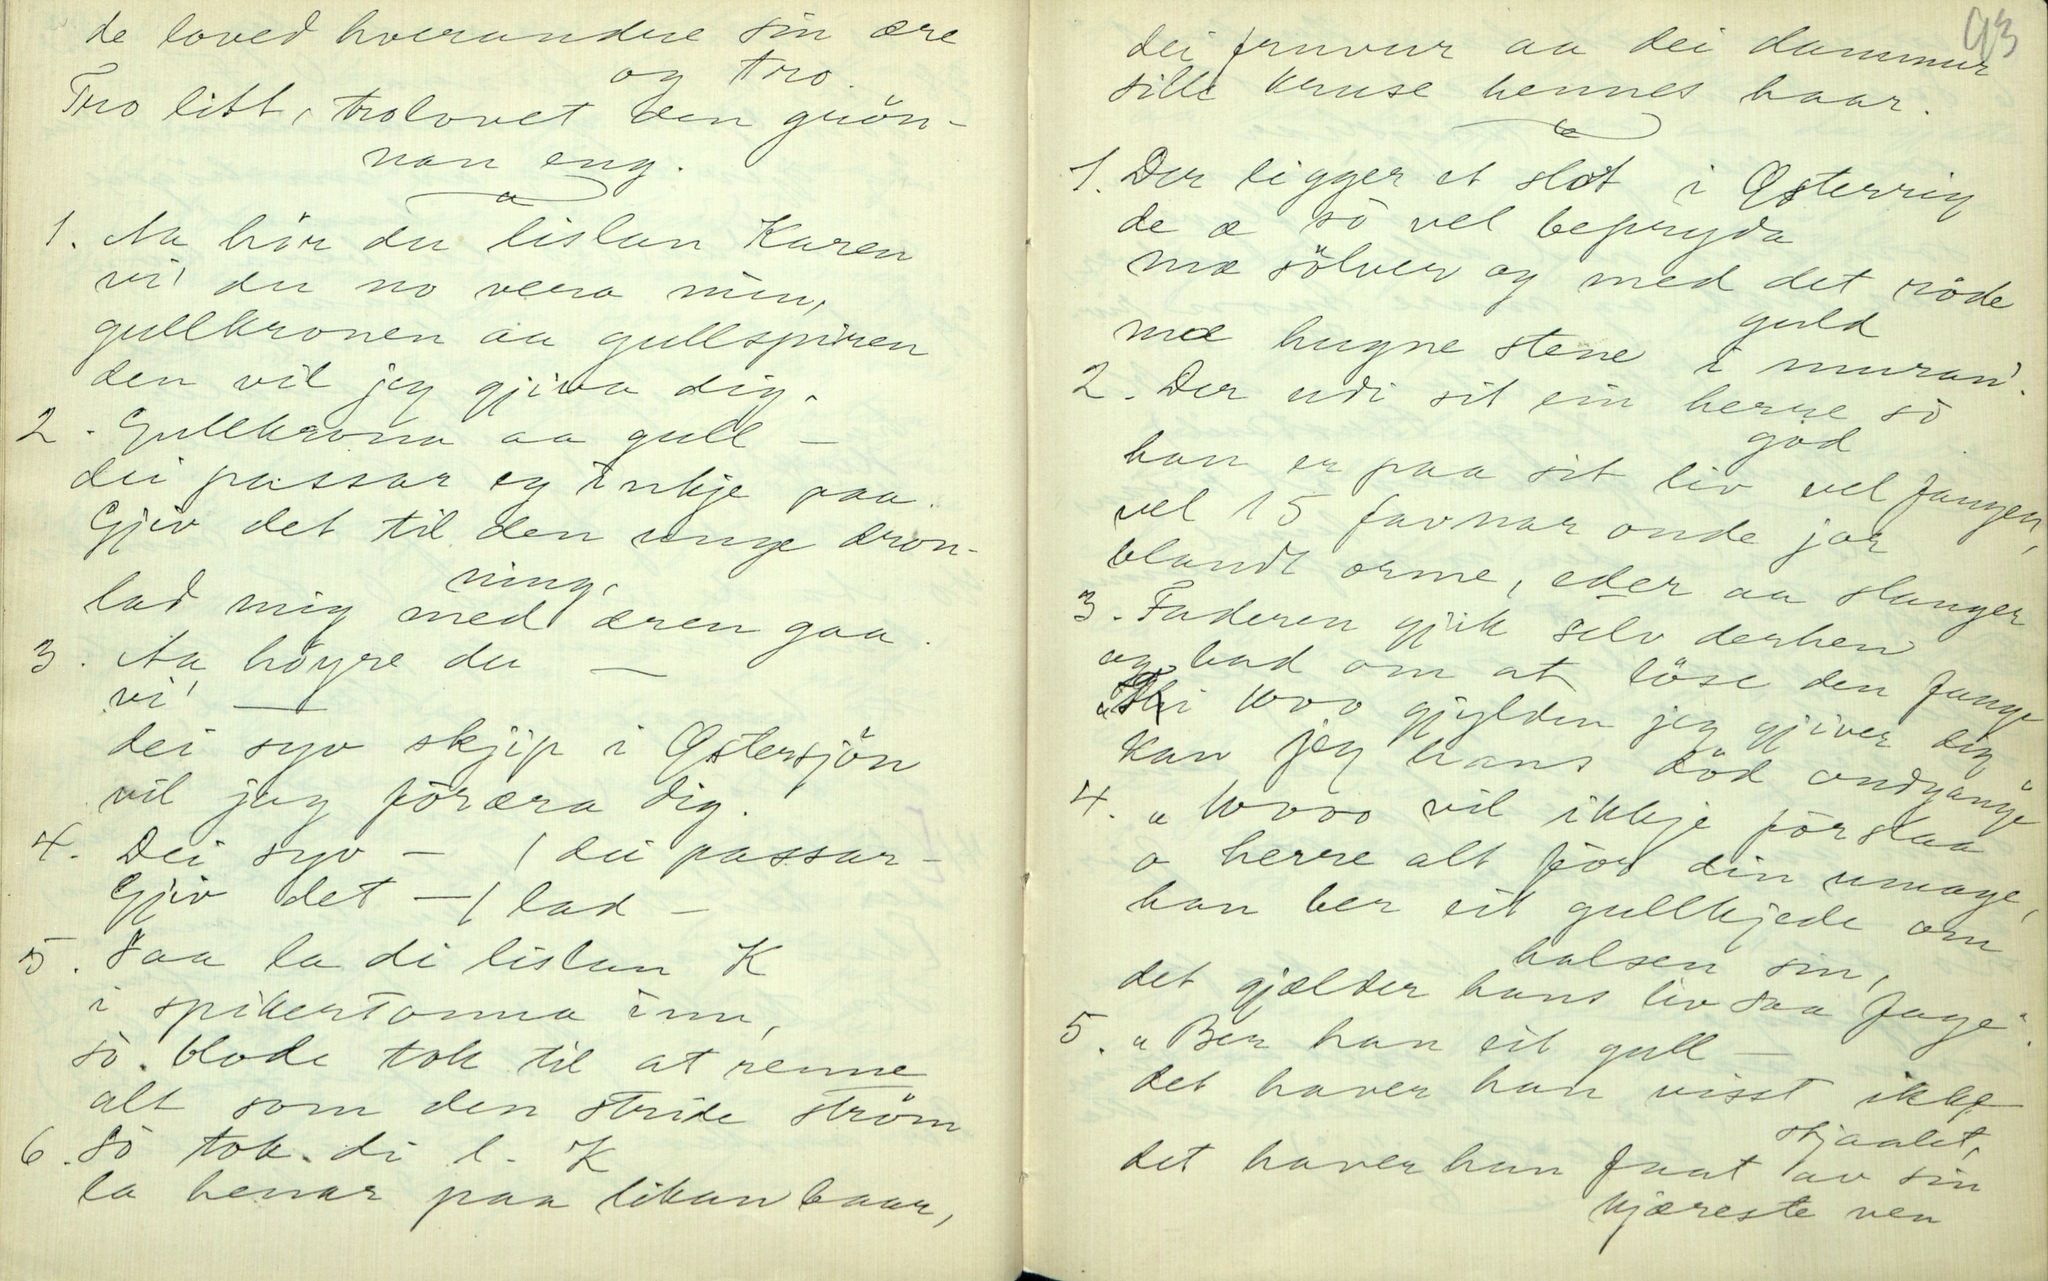 de loved hverandre sin ære
og tro.
Tro litt, trolovet den grön-
nan eng.
a
1. Aa hör du lislan Karen
vi' du no vera min,
gullkronen aa gullspiren
den vil jeg gjiva dig.
2. Gullkrona aa gull –
dei passar eg inkje paa.
Gjiv det til den unge dron-
ning,
lad mig med æren gaa.
3. Aa höyre du —
vi' —
dei syv skjip i Östersjön
vil jag förära dig.
4. Dei syv – / dei passar –
Gjiv det – / lad –
5. Saa la di lislan K
i spikertonna inn,
så blode tok til at renne
alt som den stride ström
6. Så tok di l. K
la henar paa likan baar,
93
dei fruvur aa dei dammur
sille kruse hennes haar.
1. Der ligger et slot i Østerrig
de æ så vel bepryda
mæ sölver og med det röde
guld
mæ hugne stene i muran'.
2. Der udi sit ein herre så
god
han er paa sit liv vel fangen,
vel 15 favnar onde jor
blandt orme, eder aa slanger
3. Faderen gjik selv derhen
og bad om at löse den fange
"Thi 1000 gjylden jeg gjiver dig
kan jeg hans död ondgange"
4. "10000 vil ikkje förslaa
o herre alt för din umage,
han ber eit gullkjede om
halsen sin,
det gjælder hans liv saa fage".
5. "Ber han eit gull –
det haver han visst ikke
stjaalet,
det haver han faat av sin
kjæreste ven